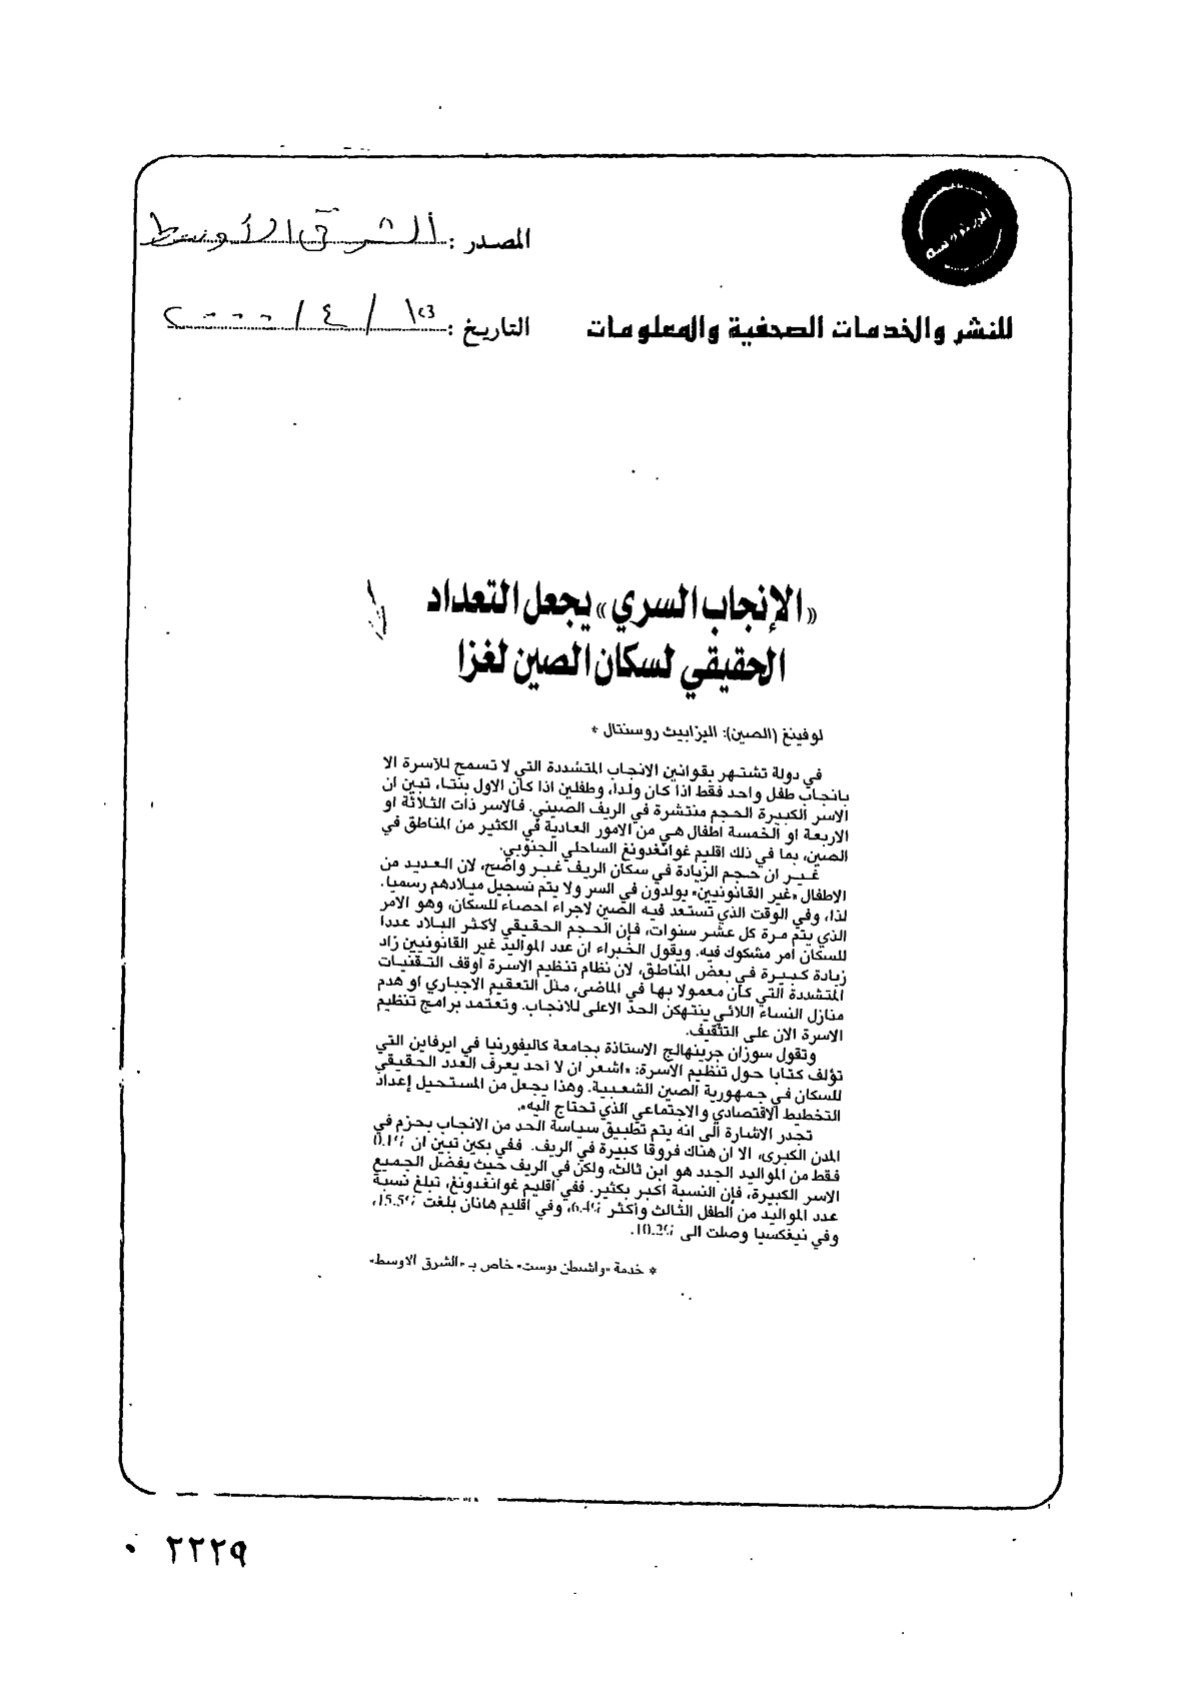 المصدر : الشرق الأوسط
للنشر والخدمات الصحفية والمعلومات
التاريخ : / ٤ / ٢٠٠٠
«الإنجاب السري» يجعل التعداد
الحقيقي لسكان الصين لغزا
لوفينغ (الصين): اليزابيث روسنتال *
في دولة تشتهر بقوانين الانجاب المتشددة التي لا تسمح للآسرة الا
بانجاب طفل واحد فقط اذا كان ولدا، وطفلين اذا كان الاول بنتا، تبين ان
الاسر الكبيرة الحجم منتشرة في الريف الصيني. فالاسر ذات الثلاثة او
الاربعة او الخمسة اطفال هي من الامور العادية في الكثير من المناطق في
الصين، بما في ذلك اقليم غوانغدونغ الساحلي الجنوبي.
غير ان حجم الزيادة في سكان الريف غير واضح، لان العديد من
الاطفال «غير القانونيين» يولدون في السر ولا يتم تسجيل ميلادهم رسميا.
لذا، وفي الوقت الذي تستعد فيه الصين لاجراء احصاء للسكان، وهو الامر
الذي يتم مرة كل عشر سنوات، فإن الحجم الحقيقي لأكثر البلاد عددا
للسكان امر مشكوك فيه. ويقول الخبراء ان عدد المواليد غير القانونيين زاد
زيادة كبيرة في بعض المناطق، لان نظام تنظيم الاسرة اوقف التقنيات
المتشددة التي كان معمولا بها في الماضي، مثل التعقيم الاجباري او هدم
منازل النساء اللائي ينتهكن الحد الاعلى للانجاب. وتعتمد برامج تنظيم
الاسرة الان على التثقيف.
وتقول سوزان جرينهالج الاستاذة بجامعة كاليفورنيا في ايرفاين التي
تؤلف كتابا حول تنظيم الاسرة: «اشعر ان لا احد يعرف العدد الحقيقي
للسكان في جمهورية الصين الشعبية. وهذا يجعل من المستحيل إعداد
التخطيط الاقتصادي والاجتماعي الذي تحتاج اليه».
تجدر الاشارة الى انه يتم تطبيق سياسة الحد من الانجاب بحزم في
المدن الكبرى، الا ان هناك فروقا كبيرة في الريف. ففي بكين تبين ان 0.1%
فقط من المواليد الجدد هو ابن ثالث، ولكن في الريف حيث يفضل الجميع
الاسر الكبيرة، فإن النسبة اكبر بكثير. ففي اقليم غوانغدونغ، تبلغ نسبة
عدد المواليد من الطفل الثالث وأكثر 6.4%، وفي اقليم هانان بلغت 15.5%،
وفي نيغكسيا وصلت الى 10.2%.
* خدمة «واشنطن بوست» خاص بـ «الشرق الاوسط»
٢٢٢٩